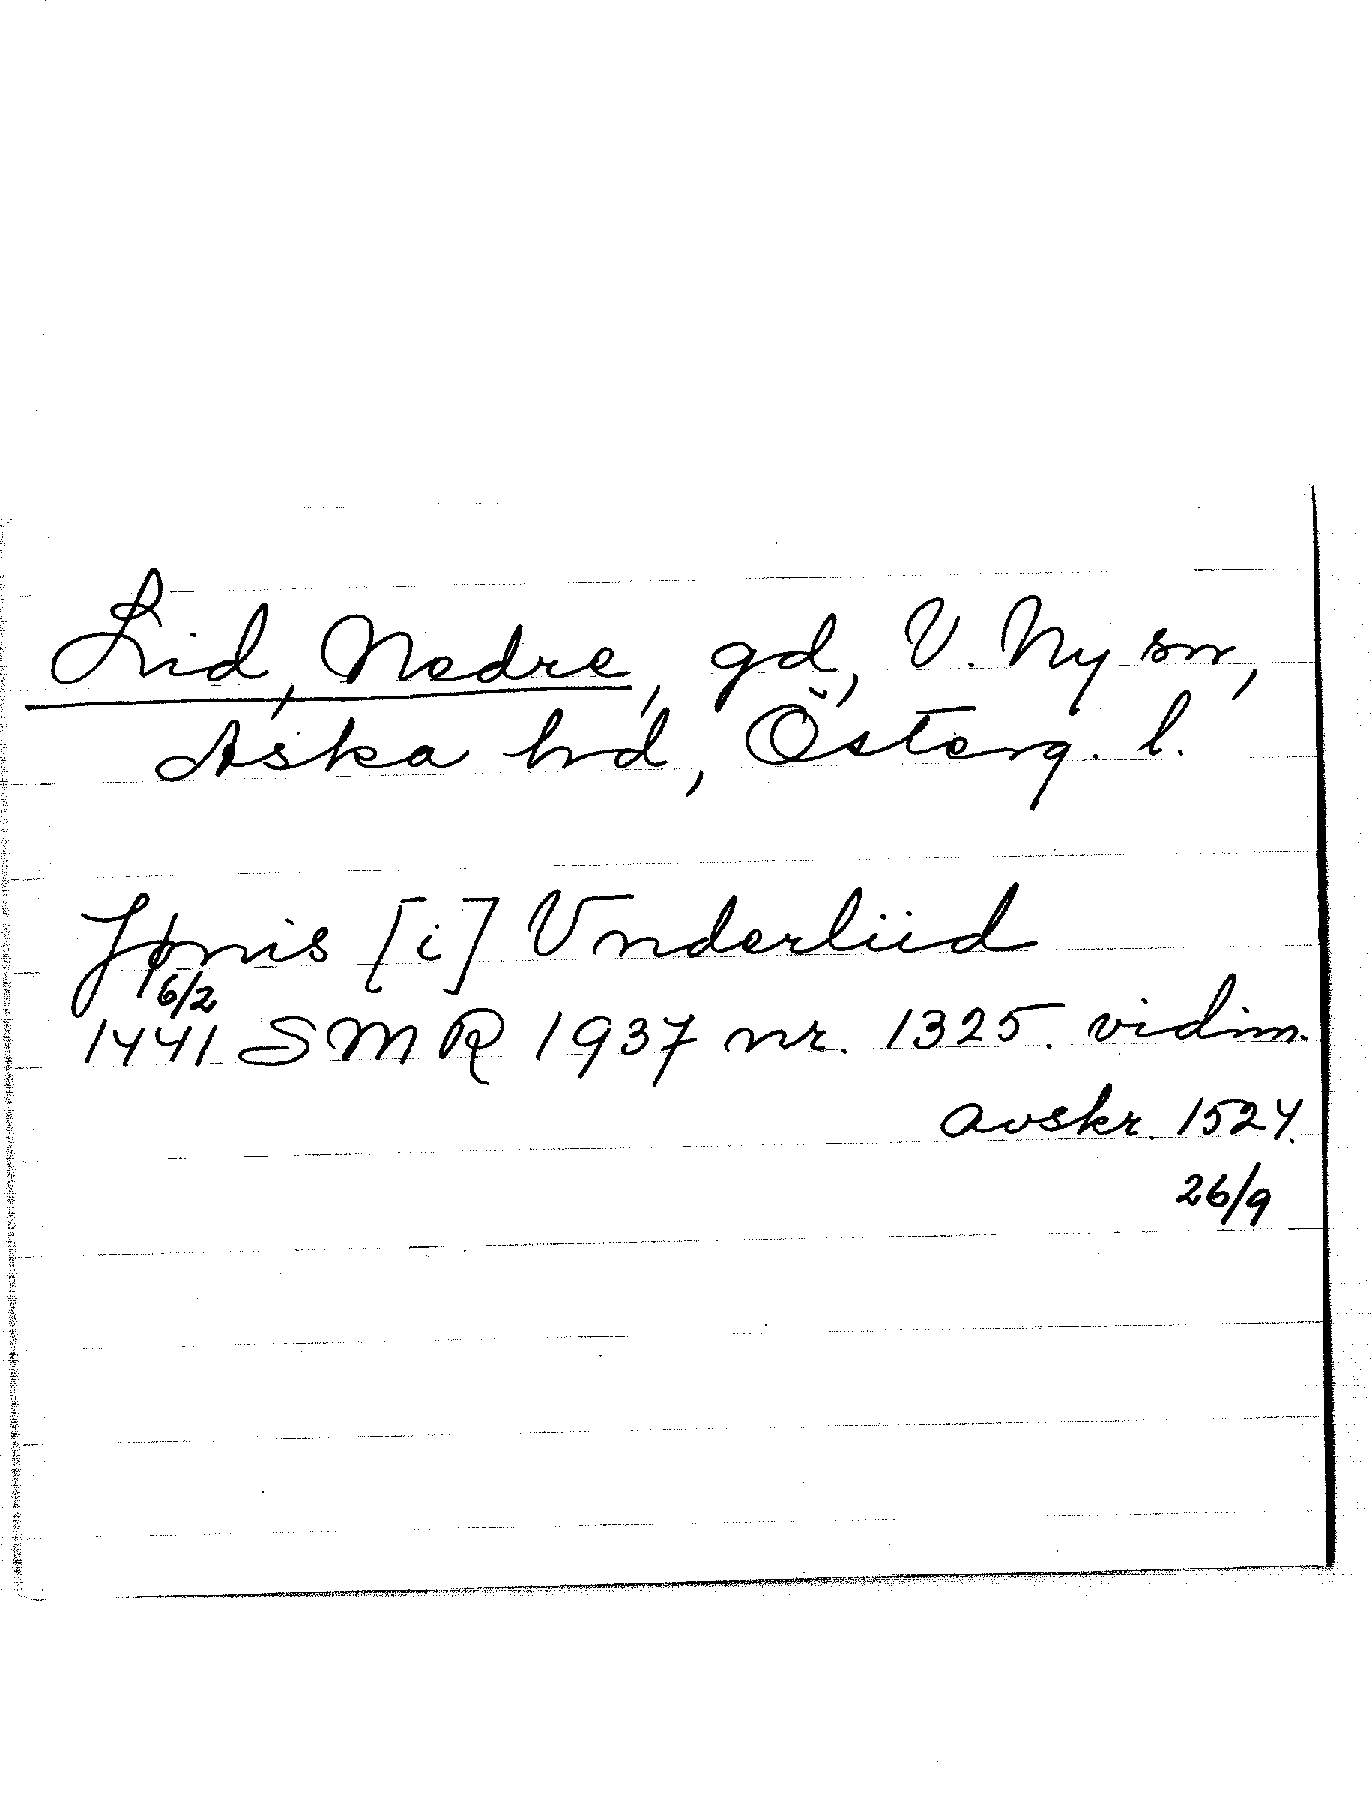 Lid, Nedre, gd, V. Ny sn,
Aska hd, Österg. l.
Jønis [i] Vnderliid
6/2
1441 SMR 1937 nr. 1325. vidim.
avskr. 1524.
26/9